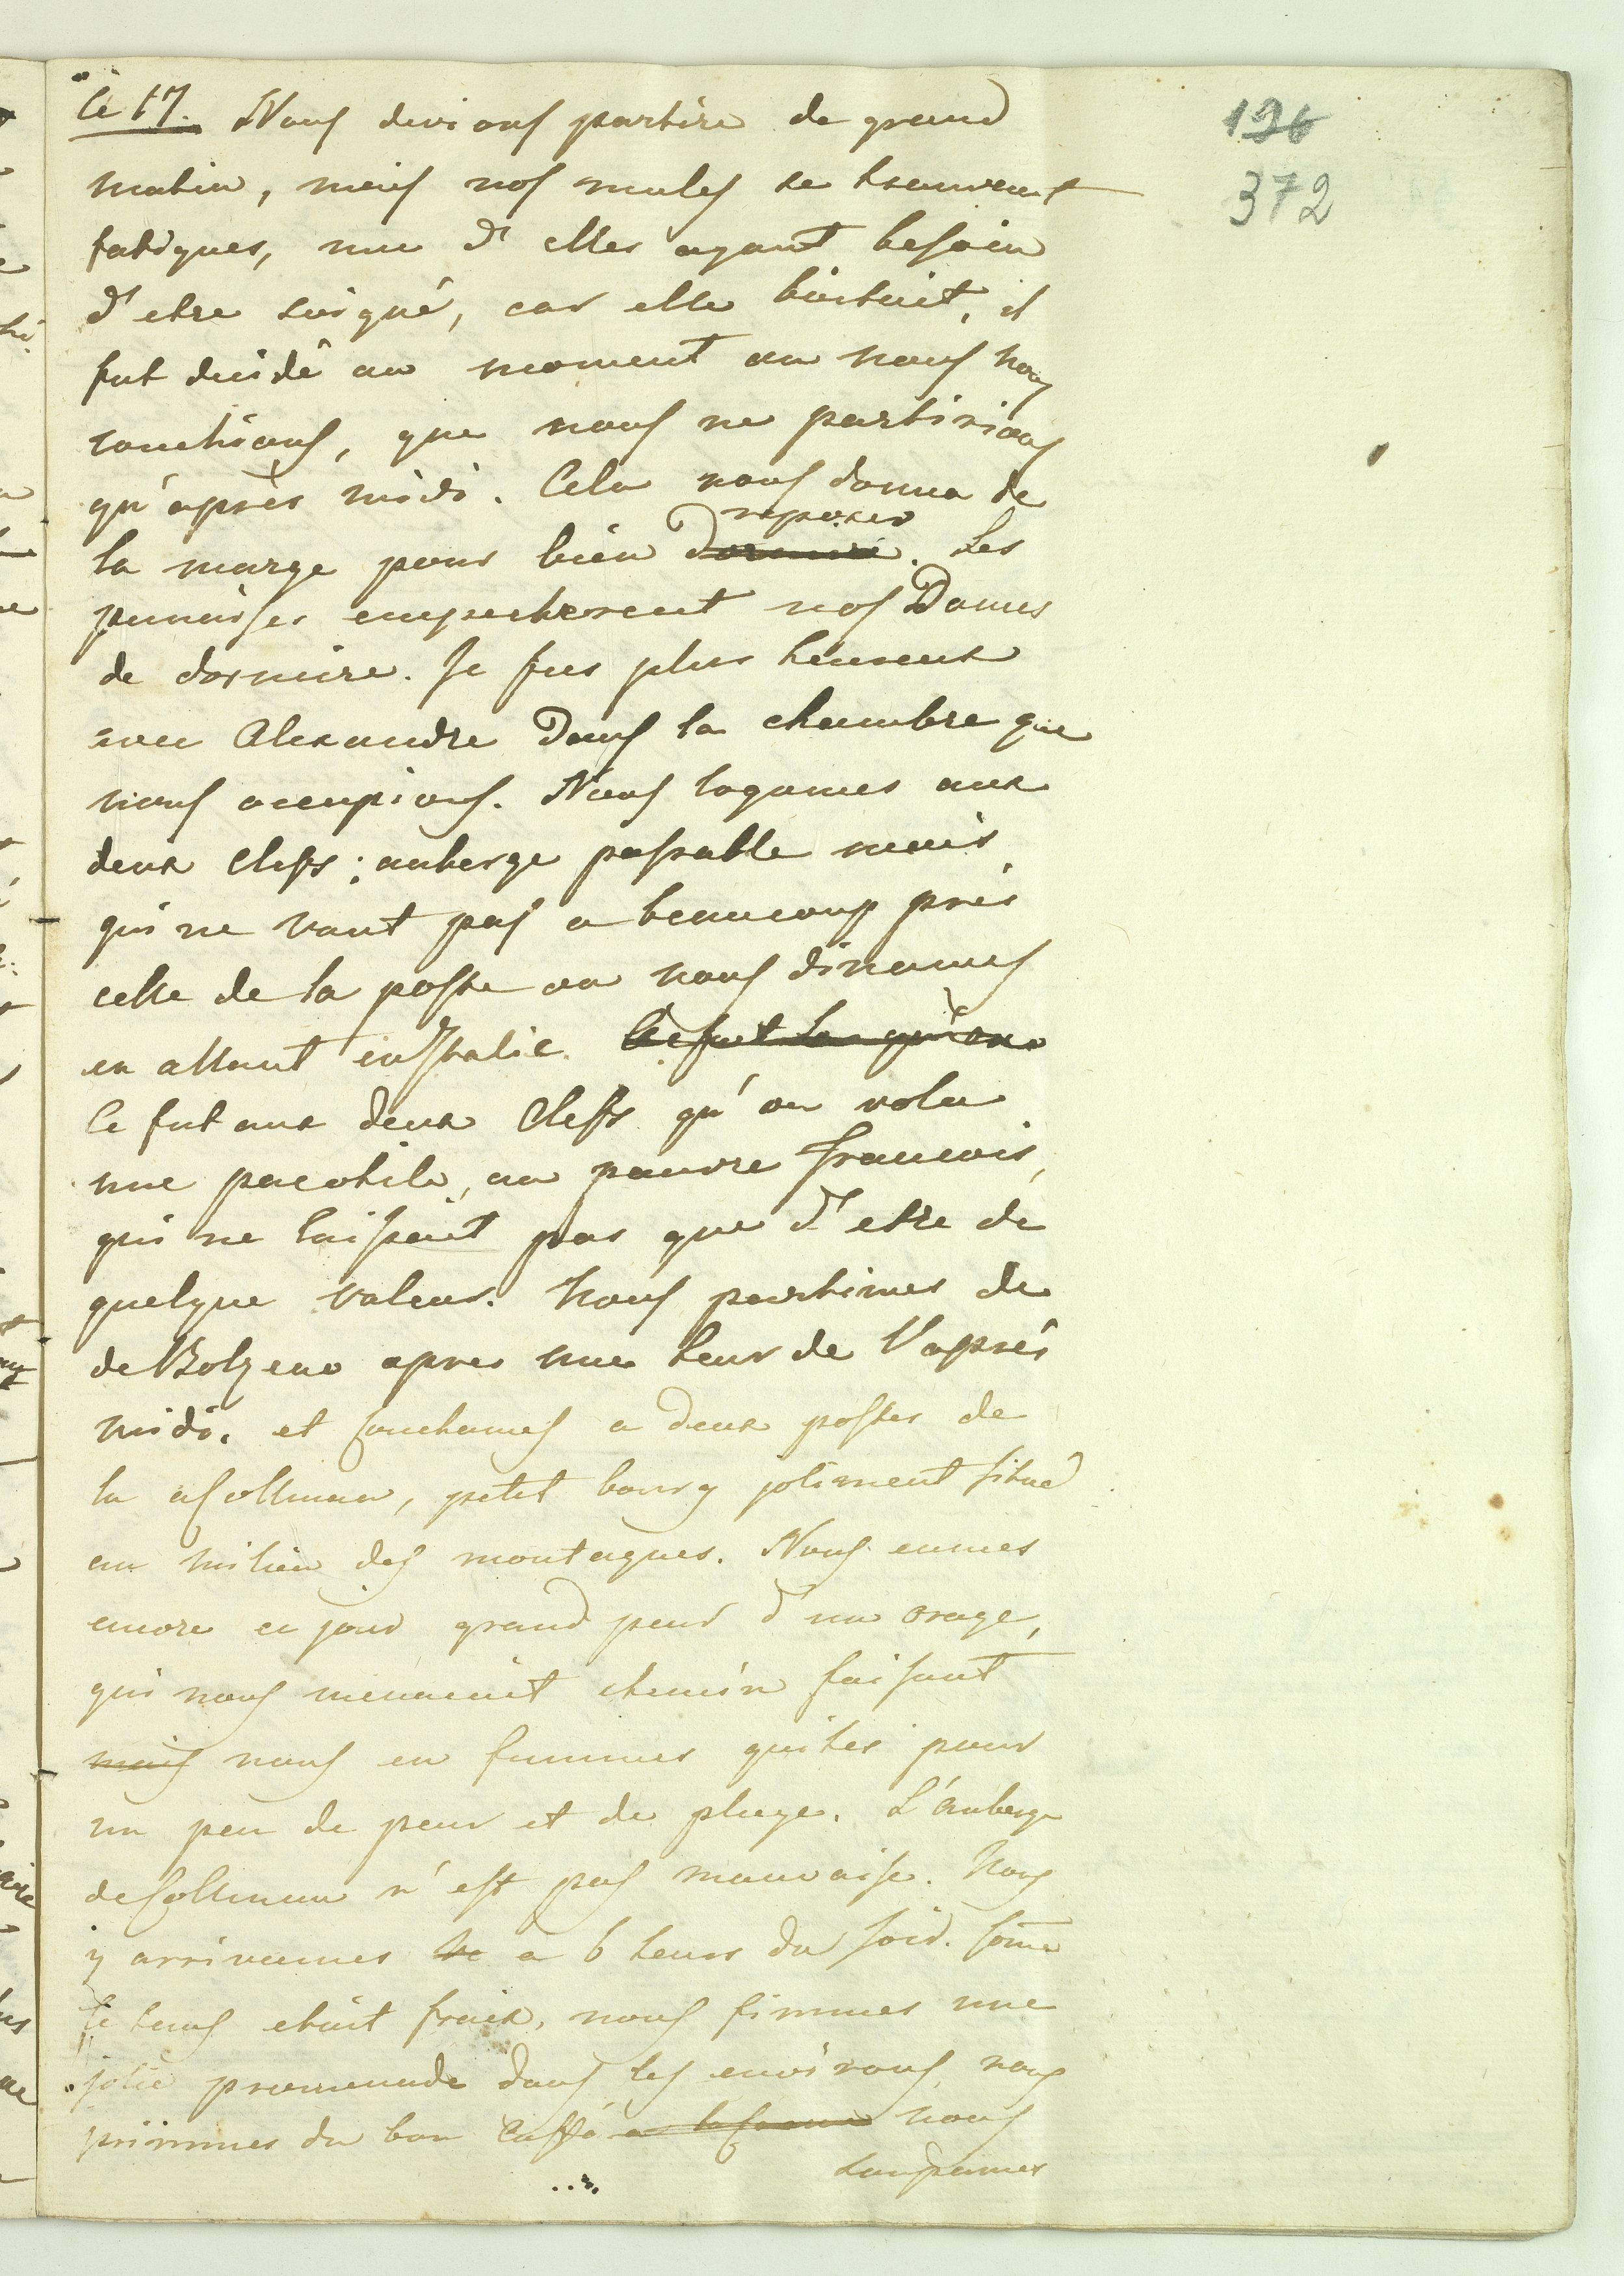 126
372
Le 17. Nous devions partire de grand
matin, mais nos mules se trouvant
fatigues, une d'elles ayant besoin
d'etre soigné, car elle boitait, il
fut decidé au moment ou nous nous
couchions, que nous ne partirions
qu'après midi. Cela nous donna de
reposer
la marge pour bien dormire. Les
punaises empecherent nos Dames
de dormire. Je fus plus heureux
avec Alexandre dans la chambre que
nous occupions. Nous logames aux
deux Clefs; auberge passable mais
qui ne vaut pas a beaucoup près
celle de la poste ou nous dinames
en allant en Italie. Ce fut la qu'on
Ce fut aux deux Clefs qu'on vola
une pacotile, au pauvre francois,
qui ne laissait pas que d'etre de
quelque valeur. Nous partimes de
de Bolzeno apres une heur de l'après
midi. et couchames a deux postes de
la a Collmann, petit bourg joliment situé
au milieu des montagnes. Nous eumes
encore ce jour grand peur d'un orage,
qui nous menacait chemin faisant
mais nous en fummes quites pour
un peu de peur et de pluye. L'auberge
de Collmann n'est pas mauvaise. Nous
y arrivames a 6 heurs du soir. Come
le tems etait fraix, nous fimmes une
jolie promenade dans les environs, nous
primmes du bon Caffé nous
soupames